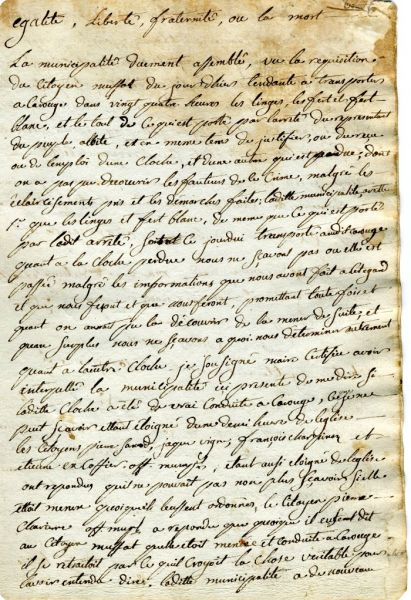 egalité, Liberté, fraternité, ou la mort
La municipalité duement assemblé, vu la requisition
du Citoyen mussat du jour d'hier tendante a transporter
a Carouge dans vingt quatre heures les linges, les fert et fert
blanc, et le tout de ce qui est porté par l'arrité du representant
du peuple albite, et en meme tems de justifier, ou du recu
ou de l'emploi d'une Cloche, et d'une autre qui est perdue, dont
on a pas pu decouvrir les fauteurs de le Crime, malgré les
eclaircisements pris et les demarches faites; laditte municipalité arrette
1° que les linges et fert blanc, de meme que ce qui est porté
par ledit arrité soient ce jourdui transporté audit Carouge
quant a la cloche perdue nous ne scavons pas ou elle est
passée malgré les informations que nous avons fait a l'egard
et que nous fesont et que nous feront, promettant toute fois et
quant on aurait pu la decouvrir de la mener de suite; et
qu'au surplus nous ne scavons a quoi nous determiner
quant a l'autre Cloche. je soussigné maire Certifie avoir
interpellé la municipalité ici presente de me dire si
laditte Cloche a été de vrai Conduite a Carouge,
peut scavoir etant eloigné d'une demi heure de l'eglise
les Citoyens pierre, jaques, françois et
etienne off. munip., etant aussi eloigné de l'eglise
ont repondus qu'il ne pouvait pas non plus scavoir si elle
etoit menée quoiqu'ils l'eussent ordonnés, le Citoyen pierre
off. mup. a repondu que quoique il eusent dit
au Citoyen mussat qu'elle etoit menée et conduite a Carouge
il se retractoit par ce qu'il Croyoit la Chose veritable pour
l'avoir entendu dire, laditte municipalité a de nouveau